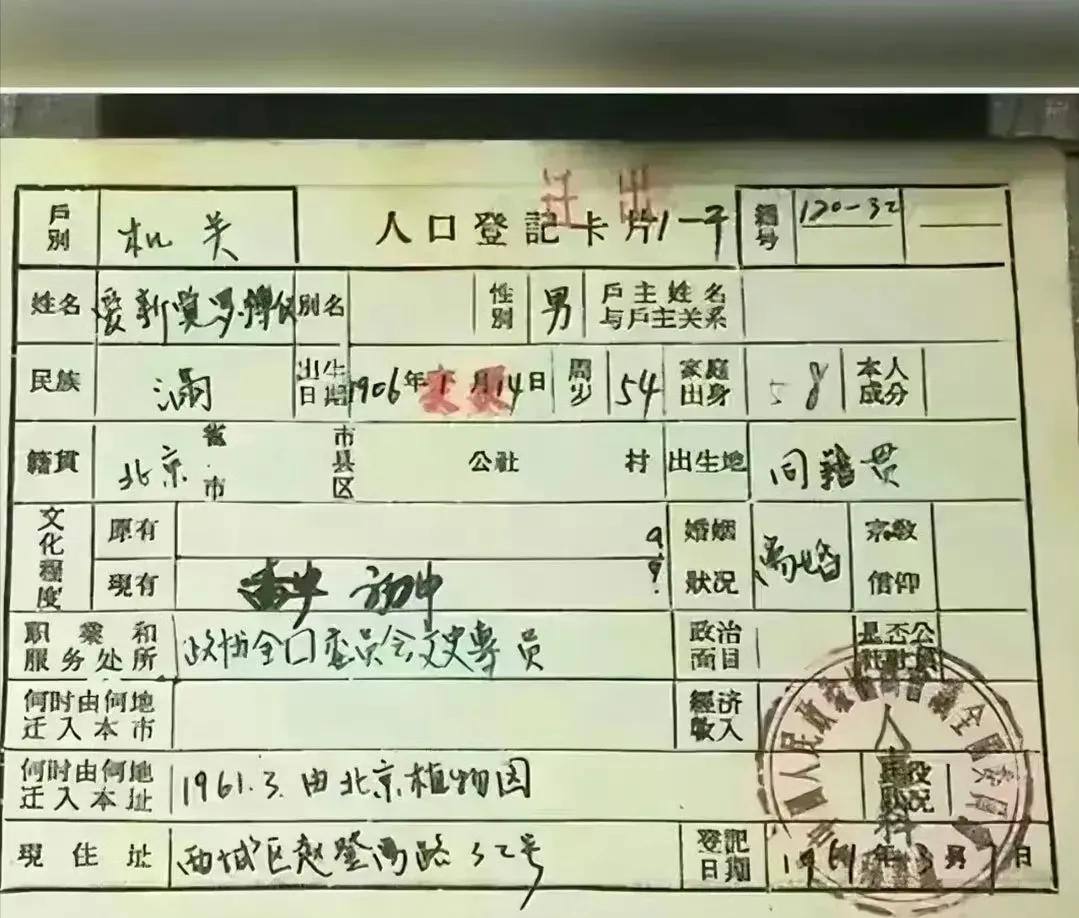 迁出
戶別 机关 人口登記卡片1-子 編号 120-32
姓名 爱新覚罗溥仪 別名 性別 男 戶主姓名与戶主关系
民族 满 出生日期 1906年1月14日 周岁 54 家庭出身 本人成分
籍貫 北京 省市 市县区 公社 村 出生地 同籍贯
文化程度 原有 婚姻狀况 宗教信仰
現有 初中
职業和服务处所 政协全国委员会文史專员 政治面目 是否公社社員
何时由何地迁入本市 經济收入
何时由何地迁入本址 1961.3.由北京植物园 兵役狀况
現住址 西城区赵登禹路32号 登記日期 1961年3月 日